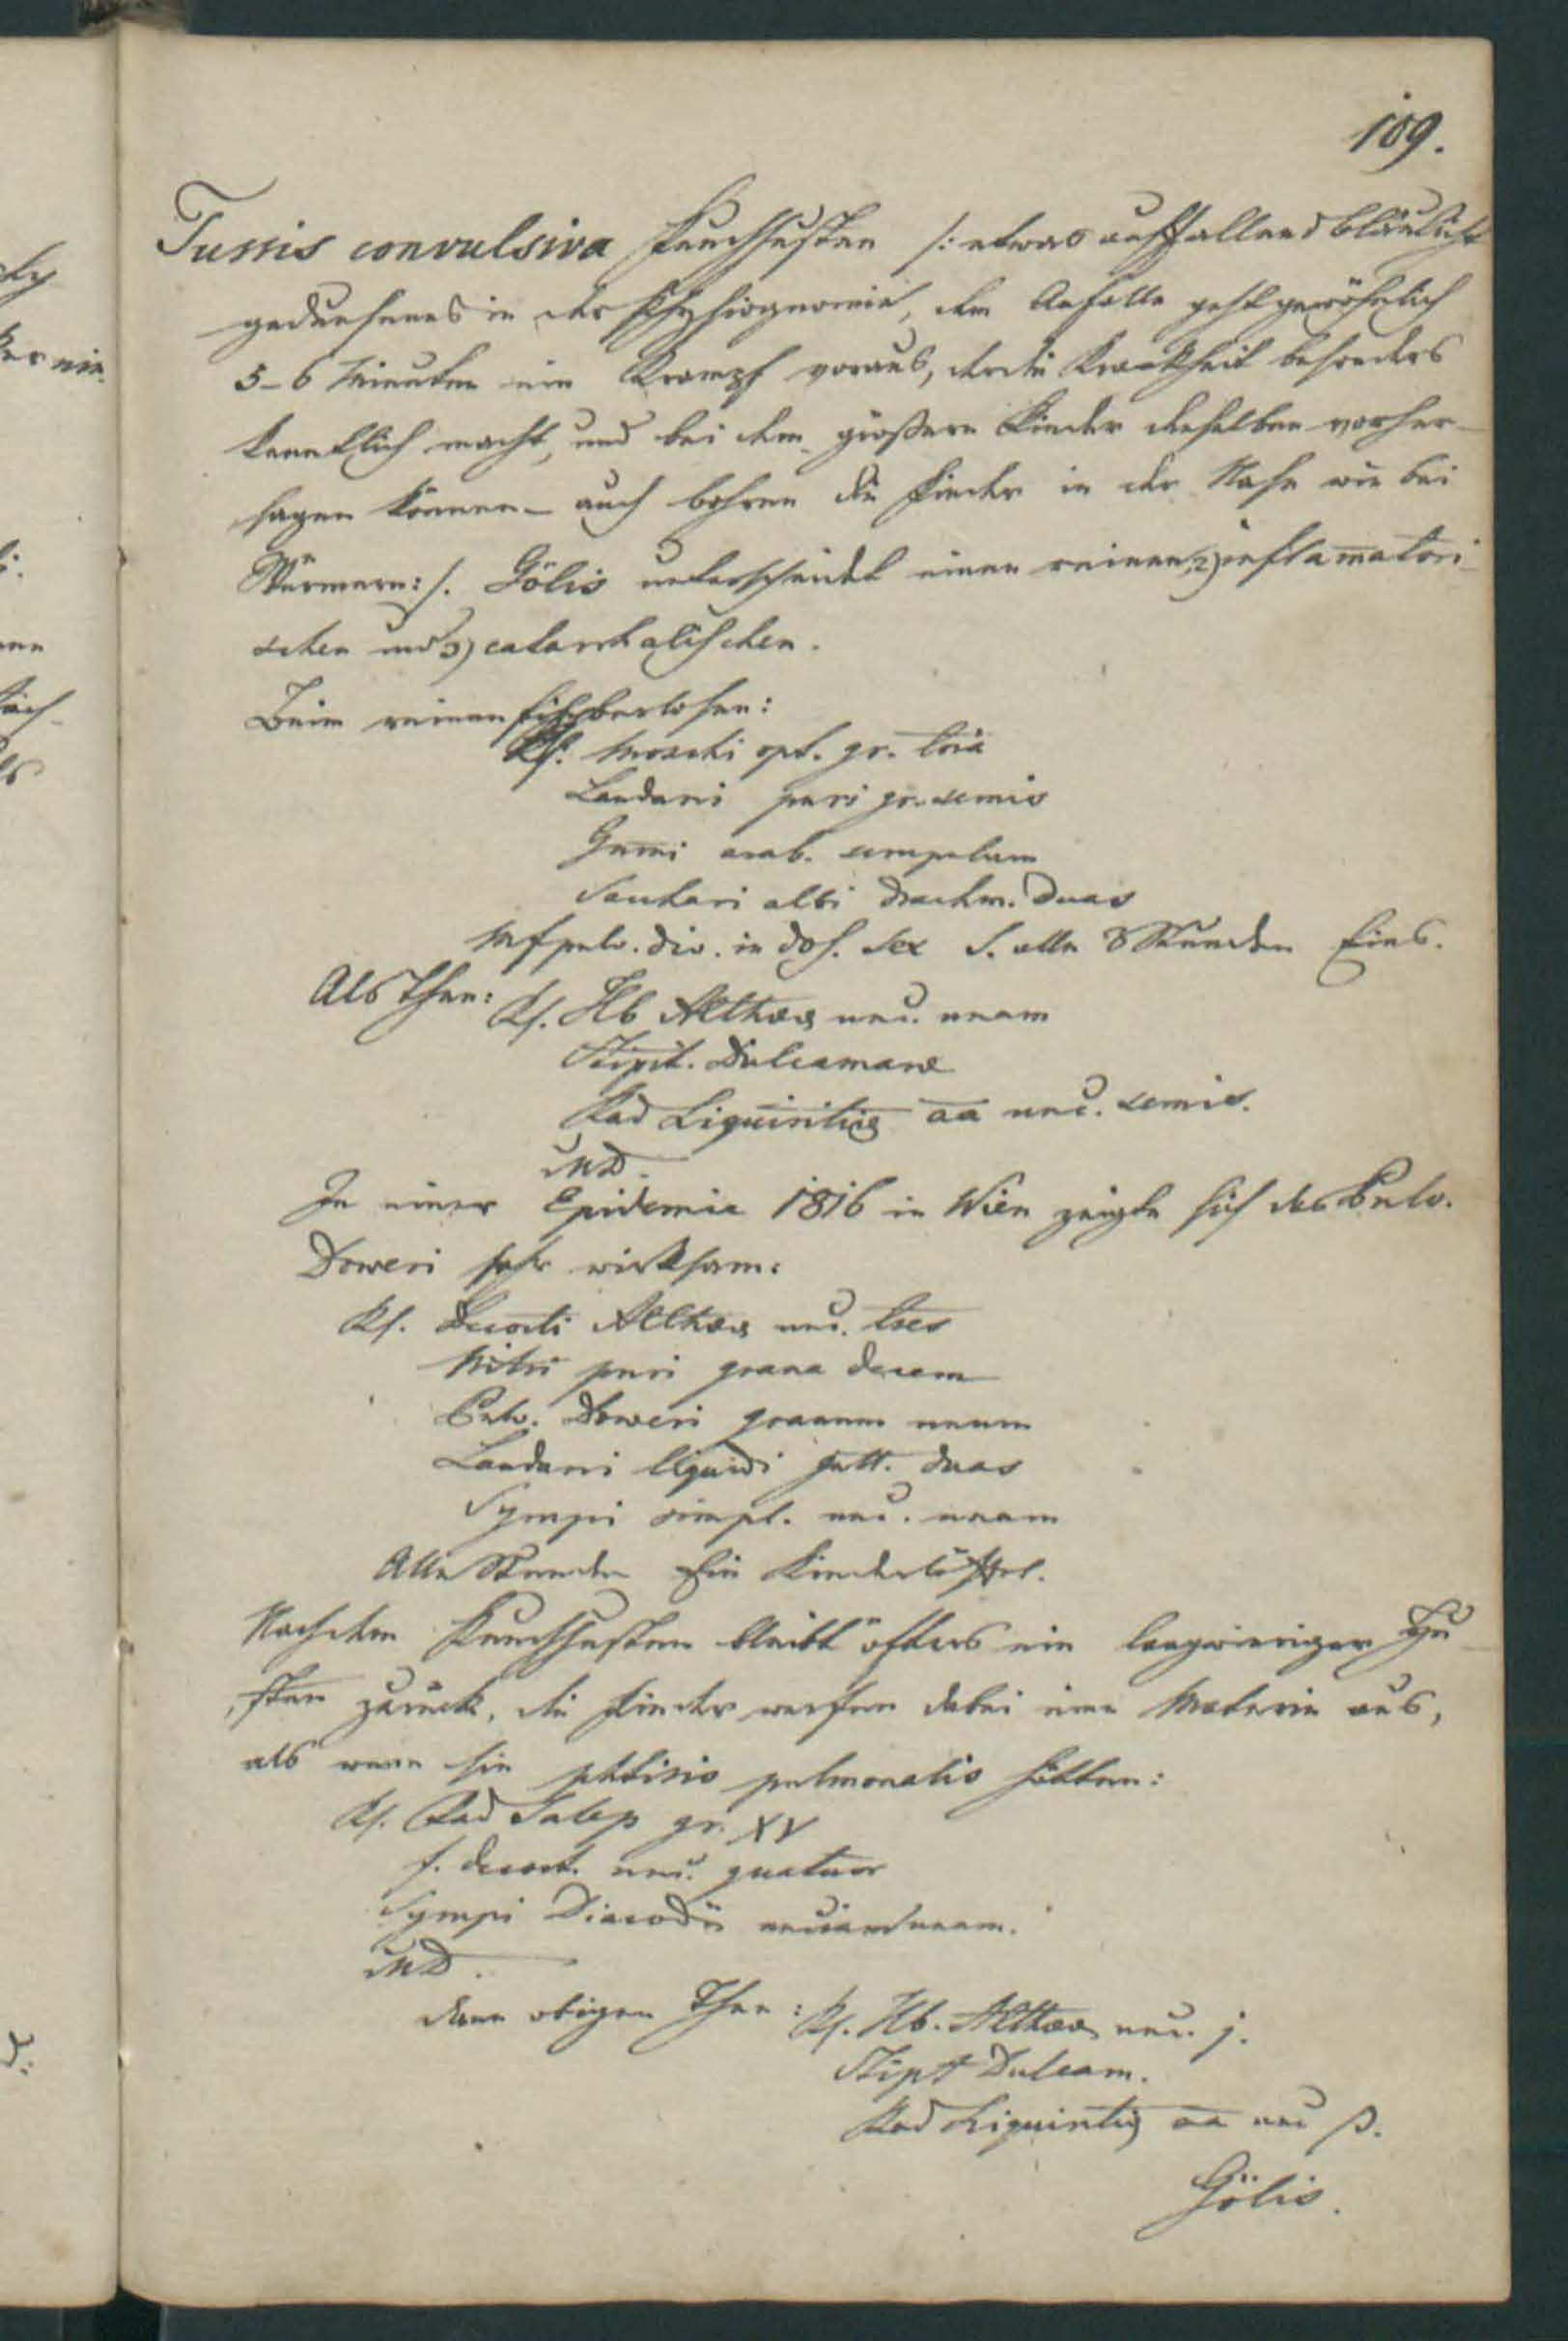 109.
Tussis convulsiva Keuchhusten /: etwas auffallend bläulicht
gedunsenes in der Physiognomie, dem Anfalle geht gewöhnlich
5-6 Minuten ein Krampf voraus, der die Krankheit besonders
kenntlich macht, und bei dem größere Kinder denselben vorher-
sagen können – auch bohren die Kinder in der Nase wie bei
Würmern :/. Gölis unterscheidet einen reinen, 2) inflam̄atori-
schen und 3) catarrhalischen.
Beim reinen fieberlosen:
Rf. Moschi opt. gr. tria
Laudani puri gr. semis
Gum̄i arab. scrupulum
Sacchari albi drachm. duas
Mf pulv. div. in dos. sex S. alle 3 Stunden Eins.
Als Thee:
Rf. Hb Althaeae unc. unam
Stipit. Dulcamarae
Rad Liquiritiae aa unc. semis.
MD.
In einer Epidemie 1816 in Wien zeigte sich das Pulv.
Doweri sehr wirksam:
Rf. Decocti Althaeae unc. tres
Nitri puri grana decem
Pulv. Doweri granum unum
Laudani liquidi gutt. duas
Syrupi simpl. unc. unam
Alle Stunden Ein Kinderlöffel.
Nach dem Keuchhusten bleibt öfters ein langwieriger Hu-
sten zurück, die Kinder werfen dabei eine Materie aus,
als wenn sie phtisis pulmonalis hätten:
Rf. Rad Salep gr. XV
f. decoct. unc. quatuor
Syrupi Diacodii unciam unam.
MD.
dann obigen Thee: Rf. Hb. Althaeae unc. j.
Stipt Dulcam.
Rad Liquiritiae aa unc ß.
Gölis.